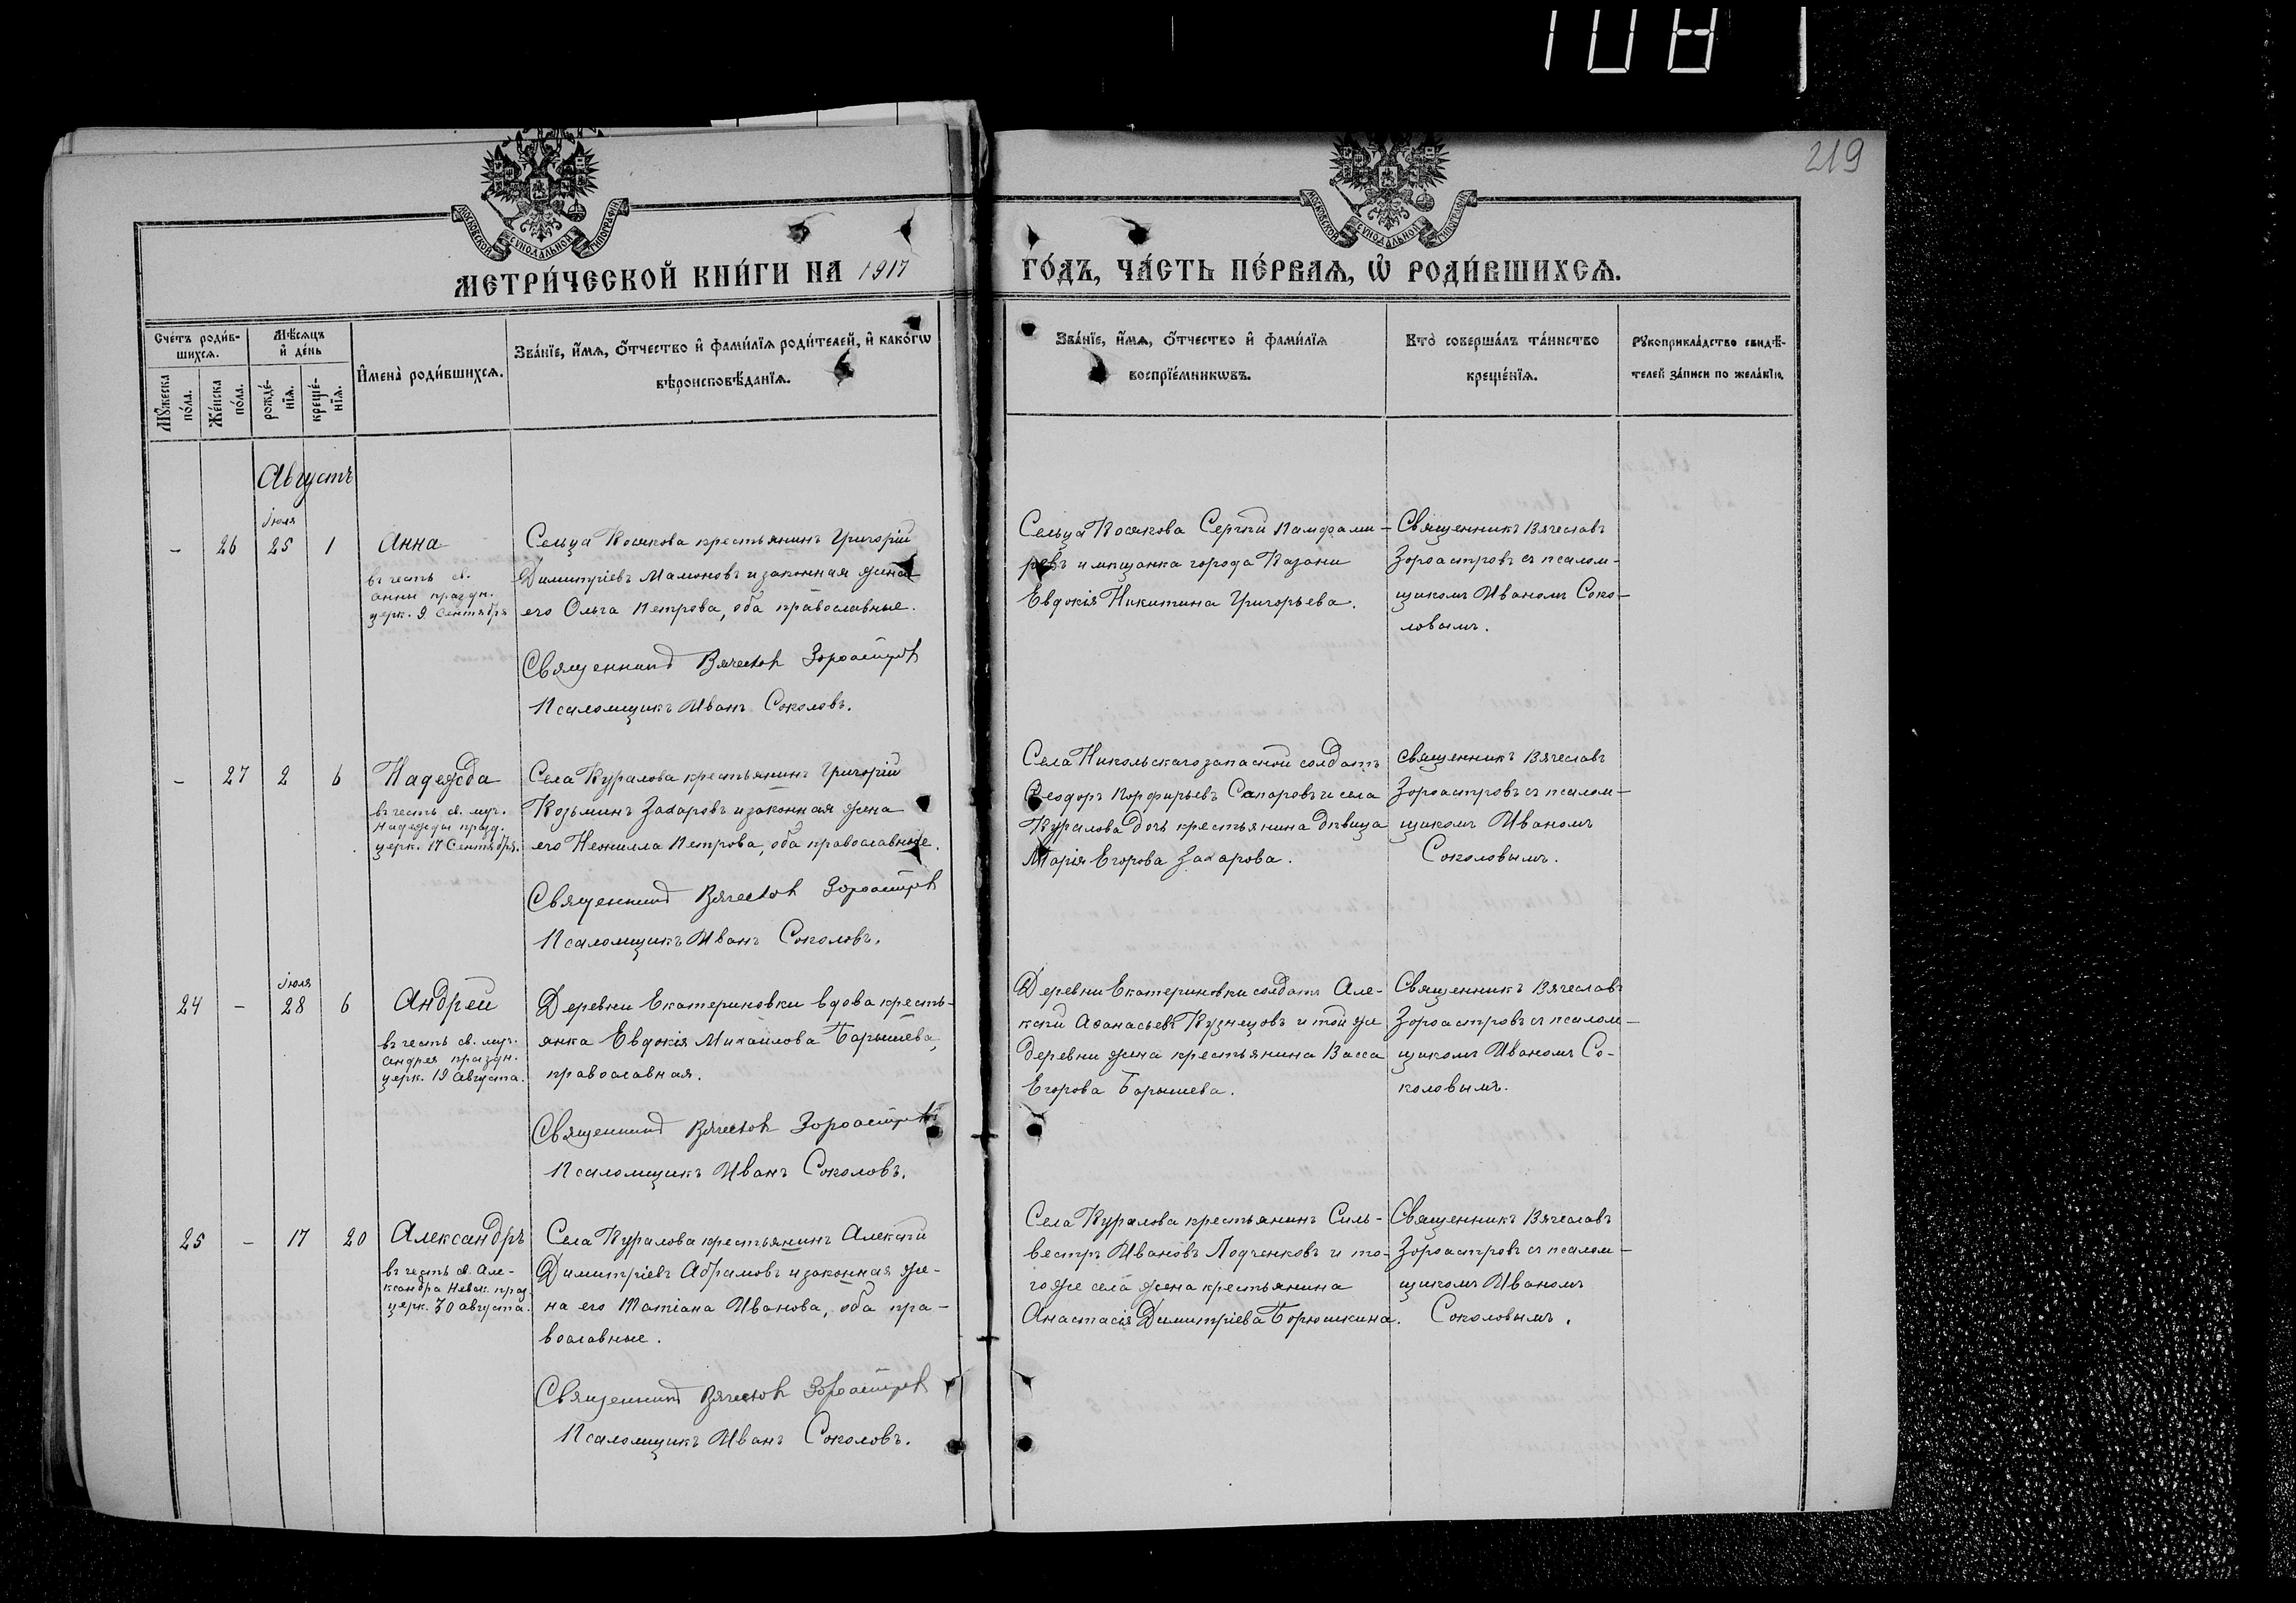 219
МОСКОВСКОЙ СѴНОДАЛЬНОЙ ТИПОГРАФІИ
МОСКОВСКОЙ СѴНОДАЛЬНОЙ ТИПОГРАФІИ
МЕТРИ́ЧЕСКОЙ КНИ́ГИ НА 1917 ГО́ДЪ, ЧА́СТЬ ПЕ́РВАѦ, Ѡ҆ РОДИ́ВШИХСѦ.
Сче́тъ роди́в-
шихсѧ.
Мѣ́сѧцъ
и҆ де́нь
Мꙋ́жеска
по́ла.
Же́нска
по́ла.
рожде́-
нїѧ.
креще́-
нїѧ.
И҆мена̀ роди́вшихсѧ.
Зва́нїе, и҆́мѧ, ѻ҆́тчество и҆ фами́лїѧ роди́телей, и҆ како́гѡ
вѣроисповѣ́данїѧ.
Зва́нїе, и҆́мѧ, ѻ҆́тчество и҆ фами́лїѧ
воспрїе́мникѡвъ.
Кто̀ соверша́лъ та́инство
креще́нїѧ.
Рꙋкоприкла́дство свидѣ́-
телей за́писи по жела́нїю.
Августъ
Іюля
- 26 25 1 Анна
въ честь св.
Анны праздн.
церк. 9 Сентября
Сельца Косякова крестьянинъ Григорій
Димитріевъ Мамоновъ и законная жена
его Ольга Петрова, оба православные.
Священникъ Вячеславъ Зороастровъ
Псаломщикъ Иванъ Соколовъ.
Сельца Косякова Сергѣй Памфами-
ровъ и мѣщанка города Казани
Евдокія Никитина Григорьева.
Священникъ Вячеславъ
Зороастровъ съ псалом-
щикомъ Иваномъ Соко-
ловымъ.
- 27 2 6 Надежда
въ честь св. муч.
Надежды празд.
церк. 17 Сентября.
Села Куралова крестьянинъ Григорій
Козьминъ Захаровъ и законная жена
его Неонилла Петрова, оба православные.
Священникъ Вячеславъ Зороастровъ
Псаломщикъ Иванъ Соколовъ.
Села Никольскаго запасной солдатъ
Ѳеодоръ Порфирьевъ Сапаровъ и села
Куралова дочь крестьянина дѣвица
Марія Егорова Захарова.
Священникъ Вячеславъ
Зороастровъ съ псалом-
щикомъ Иваномъ
Соколовымъ.
Іюля
24 - 28 6 Андрей
въ честь св. муч.
Андрея праздн.
церк. 19 Августа.
Деревни Екатериновки вдова кресть-
янка Евдокія Михайлова Барышева,
православная.
Священникъ Вячеславъ Зороастровъ
Псаломщикъ Иванъ Соколовъ.
Деревни Екатериновки солдатъ Але-
ксѣй Аѳанасьевъ Кузнецовъ и той же
деревни жена крестьянина Васса
Егорова Барышева.
Священникъ Вячеславъ
Зороастровъ съ псалом-
щикомъ Иваномъ Со-
коловымъ.
25 - 17 20 Александръ
въ честь св. Але-
ксандра Невск. праз.
церк. 30 августа.
Села Куралова крестьянинъ Алексѣй
Димитріевъ Абрамовъ и законная же-
на его Татіана Иванова, оба пра-
вославные.
Священникъ Вячеславъ Зороастровъ
Псаломщикъ Иванъ Соколовъ.
Села Куралова крестьянинъ Силь-
вестръ Ивановъ Лодченковъ и то-
го же села жена крестьянина
Анастасія Димитріева Борюшкина.
Священникъ Вячеславъ
Зороастровъ съ псалом-
щикомъ Иваномъ
Соколовымъ.